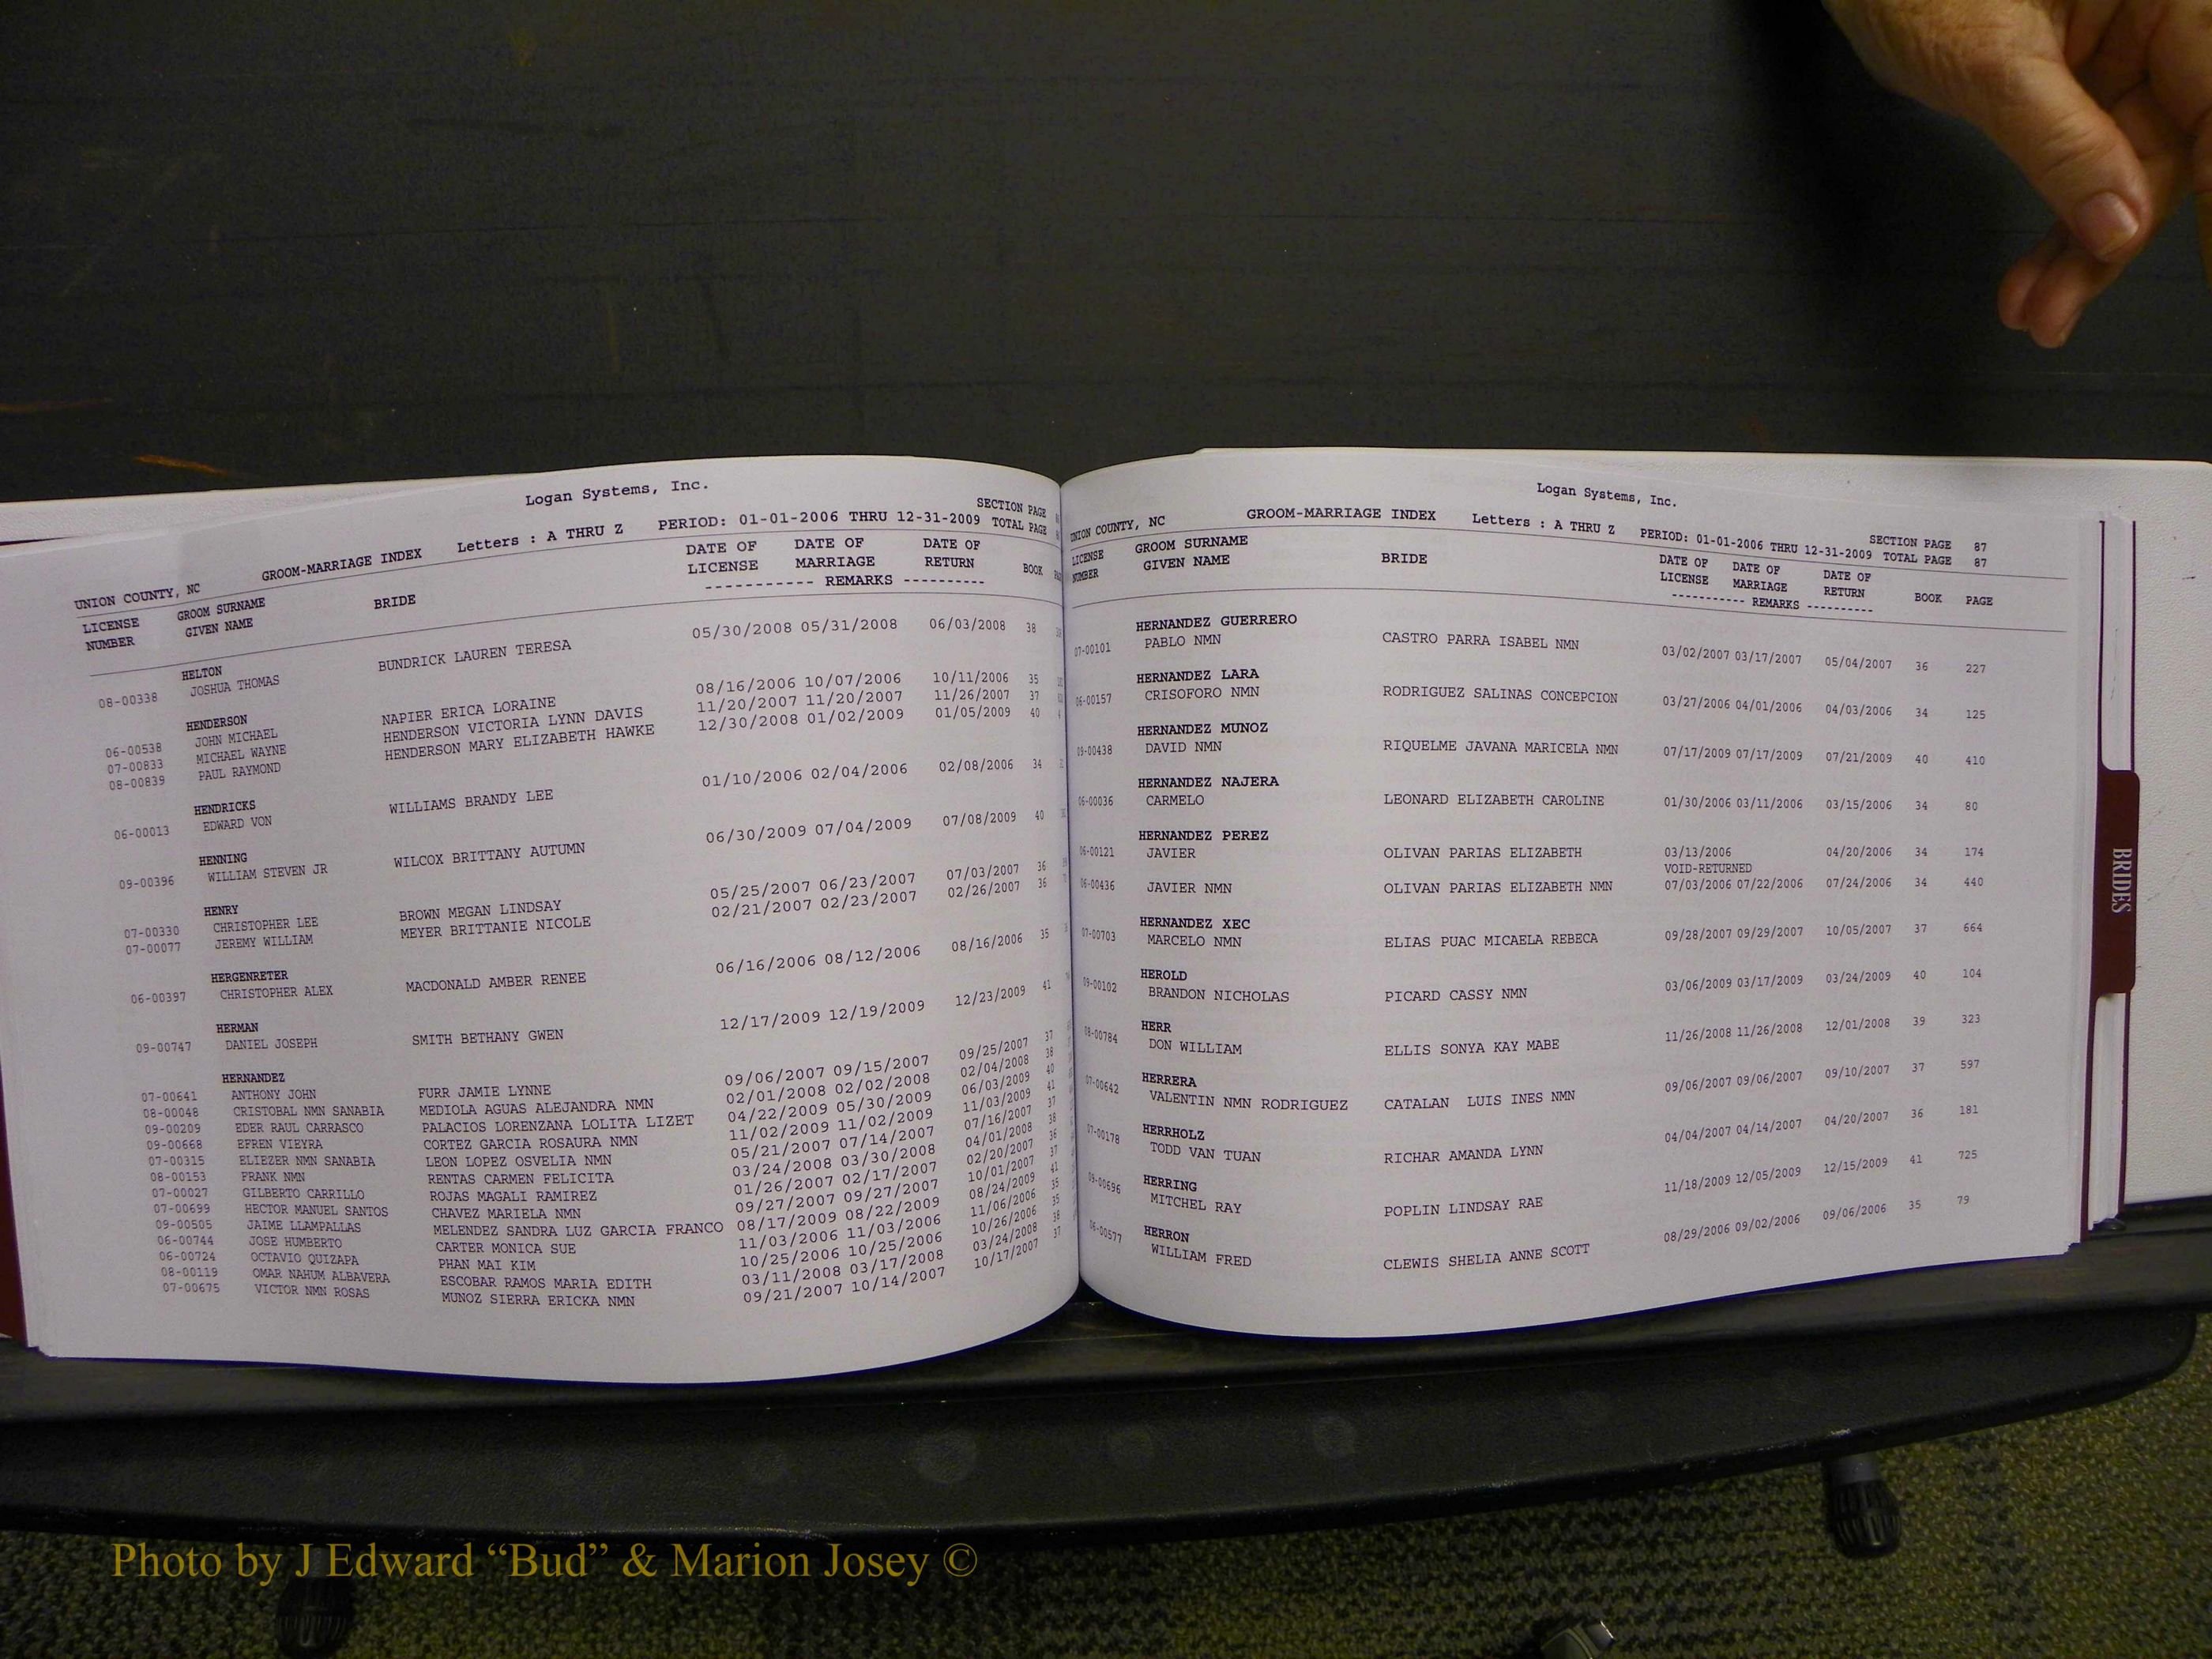 Logan Systems, Inc.
SECTION PAGE
UNION COUNTY, NC GROOM-MARRIAGE INDEX Letters : A THRU Z PERIOD: 01-01-2006 THRU 12-31-2009 TOTAL PAGE
LICENSE GROOM SURNAME BRIDE DATE OF DATE OF DATE OF
NUMBER GIVEN NAME LICENSE MARRIAGE RETURN BOOK
----------- REMARKS ----------
HELTON
08-00338 JOSHUA THOMAS BUNDRICK LAUREN TERESA 05/30/2008 05/31/2008 06/03/2008 38
HENDERSON
06-00538 JOHN MICHAEL NAPIER ERICA LORAINE 08/16/2006 10/07/2006 10/11/2006 35
07-00833 MICHAEL WAYNE HENDERSON VICTORIA LYNN DAVIS 11/20/2007 11/20/2007 11/26/2007 37
08-00839 PAUL RAYMOND HENDERSON MARY ELIZABETH HAWKE 12/30/2008 01/02/2009 01/05/2009 40
HENDRICKS
06-00013 EDWARD VON WILLIAMS BRANDY LEE 01/10/2006 02/04/2006 02/08/2006 34
HENNING
09-00396 WILLIAM STEVEN JR WILCOX BRITTANY AUTUMN 06/30/2009 07/04/2009 07/08/2009 40
HENRY
07-00330 CHRISTOPHER LEE BROWN MEGAN LINDSAY 05/25/2007 06/23/2007 07/03/2007 36
07-00077 JEREMY WILLIAM MEYER BRITTANIE NICOLE 02/21/2007 02/23/2007 02/26/2007 36
HERGENRETER
06-00397 CHRISTOPHER ALEX MACDONALD AMBER RENEE 06/16/2006 08/12/2006 08/16/2006 35
HERMAN
09-00747 DANIEL JOSEPH SMITH BETHANY GWEN 12/17/2009 12/19/2009 12/23/2009 41
HERNANDEZ
07-00641 ANTHONY JOHN FURR JAMIE LYNNE 09/06/2007 09/15/2007 09/25/2007 37
08-00048 CRISTOBAL NMN SANABIA MEDIOLA AGUAS ALEJANDRA NMN 02/01/2008 02/02/2008 02/04/2008 38
09-00209 EDER RAUL CARRASCO PALACIOS LORENZANA LOLITA LIZET 04/22/2009 05/30/2009 06/03/2009 40
09-00668 EFREN VIEYRA CORTEZ GARCIA ROSAURA NMN 11/02/2009 11/02/2009 11/03/2009 41
07-00315 ELIEZER NMN SANABIA LEON LOPEZ OSVELIA NMN 05/21/2007 07/14/2007 07/16/2007 37
08-00153 FRANK NMN RENTAS CARMEN FELICITA 03/24/2008 03/30/2008 04/01/2008 38
07-00027 GILBERTO CARRILLO ROJAS MAGALI RAMIREZ 01/26/2007 02/17/2007 02/20/2007 36
07-00699 HECTOR MANUEL SANTOS CHAVEZ MARIELA NMN 09/27/2007 09/27/2007 10/01/2007 37
09-00505 JAIME LLAMPALLAS MELENDEZ SANDRA LUZ GARCIA FRANCO 08/17/2009 08/22/2009 08/24/2009 41
06-00744 JOSE HUMBERTO CARTER MONICA SUE 11/03/2006 11/03/2006 11/06/2006 35
06-00724 OCTAVIO QUIZAPA PHAN MAI KIM 10/25/2006 10/25/2006 10/26/2006 35
08-00119 OMAR NAHUM ALBAVERA ESCOBAR RAMOS MARIA EDITH 03/11/2008 03/17/2008 03/24/2008 38
07-00675 VICTOR NMN ROSAS MUNOZ SIERRA ERICKA NMN 09/21/2007 10/14/2007 10/17/2007 37
Logan Systems, Inc.
SECTION PAGE 87
UNION COUNTY, NC GROOM-MARRIAGE INDEX Letters : A THRU Z PERIOD: 01-01-2006 THRU 12-31-2009 TOTAL PAGE 87
LICENSE GROOM SURNAME BRIDE DATE OF DATE OF DATE OF
NUMBER GIVEN NAME LICENSE MARRIAGE RETURN BOOK PAGE
----------- REMARKS ----------
HERNANDEZ GUERRERO
07-00101 PABLO NMN CASTRO PARRA ISABEL NMN 03/02/2007 03/17/2007 05/04/2007 36 227
HERNANDEZ LARA
06-00157 CRISOFORO NMN RODRIGUEZ SALINAS CONCEPCION 03/27/2006 04/01/2006 04/03/2006 34 125
HERNANDEZ MUNOZ
09-00438 DAVID NMN RIQUELME JAVANA MARICELA NMN 07/17/2009 07/17/2009 07/21/2009 40 410
HERNANDEZ NAJERA
06-00036 CARMELO LEONARD ELIZABETH CAROLINE 01/30/2006 03/11/2006 03/15/2006 34 80
HERNANDEZ PEREZ
06-00121 JAVIER OLIVAN PARIAS ELIZABETH 03/13/2006 04/20/2006 34 174
VOID-RETURNED
06-00436 JAVIER NMN OLIVAN PARIAS ELIZABETH NMN 07/03/2006 07/22/2006 07/24/2006 34 440
HERNANDEZ XEC
07-00703 MARCELO NMN ELIAS PUAC MICAELA REBECA 09/28/2007 09/29/2007 10/05/2007 37 664
HEROLD
09-00102 BRANDON NICHOLAS PICARD CASSY NMN 03/06/2009 03/17/2009 03/24/2009 40 104
HERR
08-00784 DON WILLIAM ELLIS SONYA KAY MABE 11/26/2008 11/26/2008 12/01/2008 39 323
HERRERA
07-00642 VALENTIN NMN RODRIGUEZ CATALAN LUIS INES NMN 09/06/2007 09/06/2007 09/10/2007 37 597
HERRHOLZ
07-00178 TODD VAN TUAN RICHAR AMANDA LYNN 04/04/2007 04/14/2007 04/20/2007 36 181
HERRING
09-00696 MITCHEL RAY POPLIN LINDSAY RAE 11/18/2009 12/05/2009 12/15/2009 41 725
HERRON
06-00577 WILLIAM FRED CLEWIS SHELIA ANNE SCOTT 08/29/2006 09/02/2006 09/06/2006 35 79
BRIDES
Photo by J Edward “Bud” & Marion Josey ©